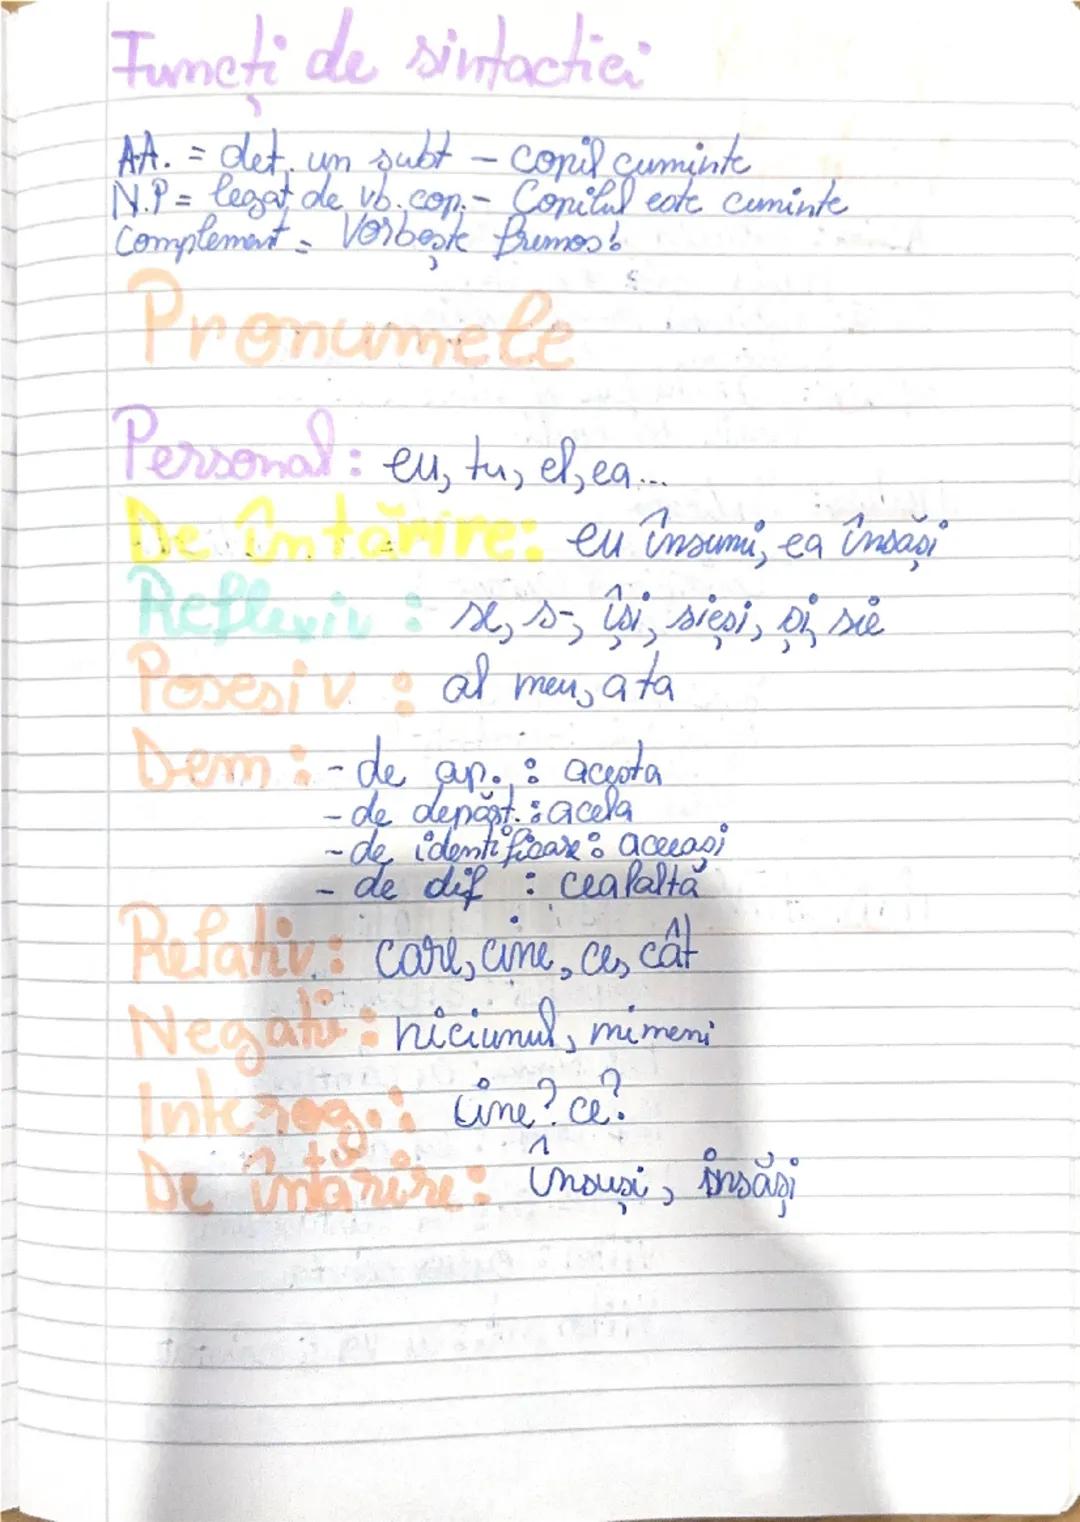 Funcți de sintactici
A.A. = det. un subt - copil cuminte
N.P = legat de vb. cop. - Copilul este cuminte
Complement = Vorbește frumos!
Pronumele
Personal: eu, tu, el, ea...
De întărire: eu însumi, ea însăși
Reflexiv: se, s-, își, sieși, și, sie
Posesiv: al meu, a ta
Dem: - de ap. : acesta
- de depărt. : acela
- de identificare: aceeași
- de dif : cealaltă
Relativ: care, cine, ce, cât
Negativ: niciunul, nimeni
Interog.: cine? ce?
De întărire: însuși, însăși